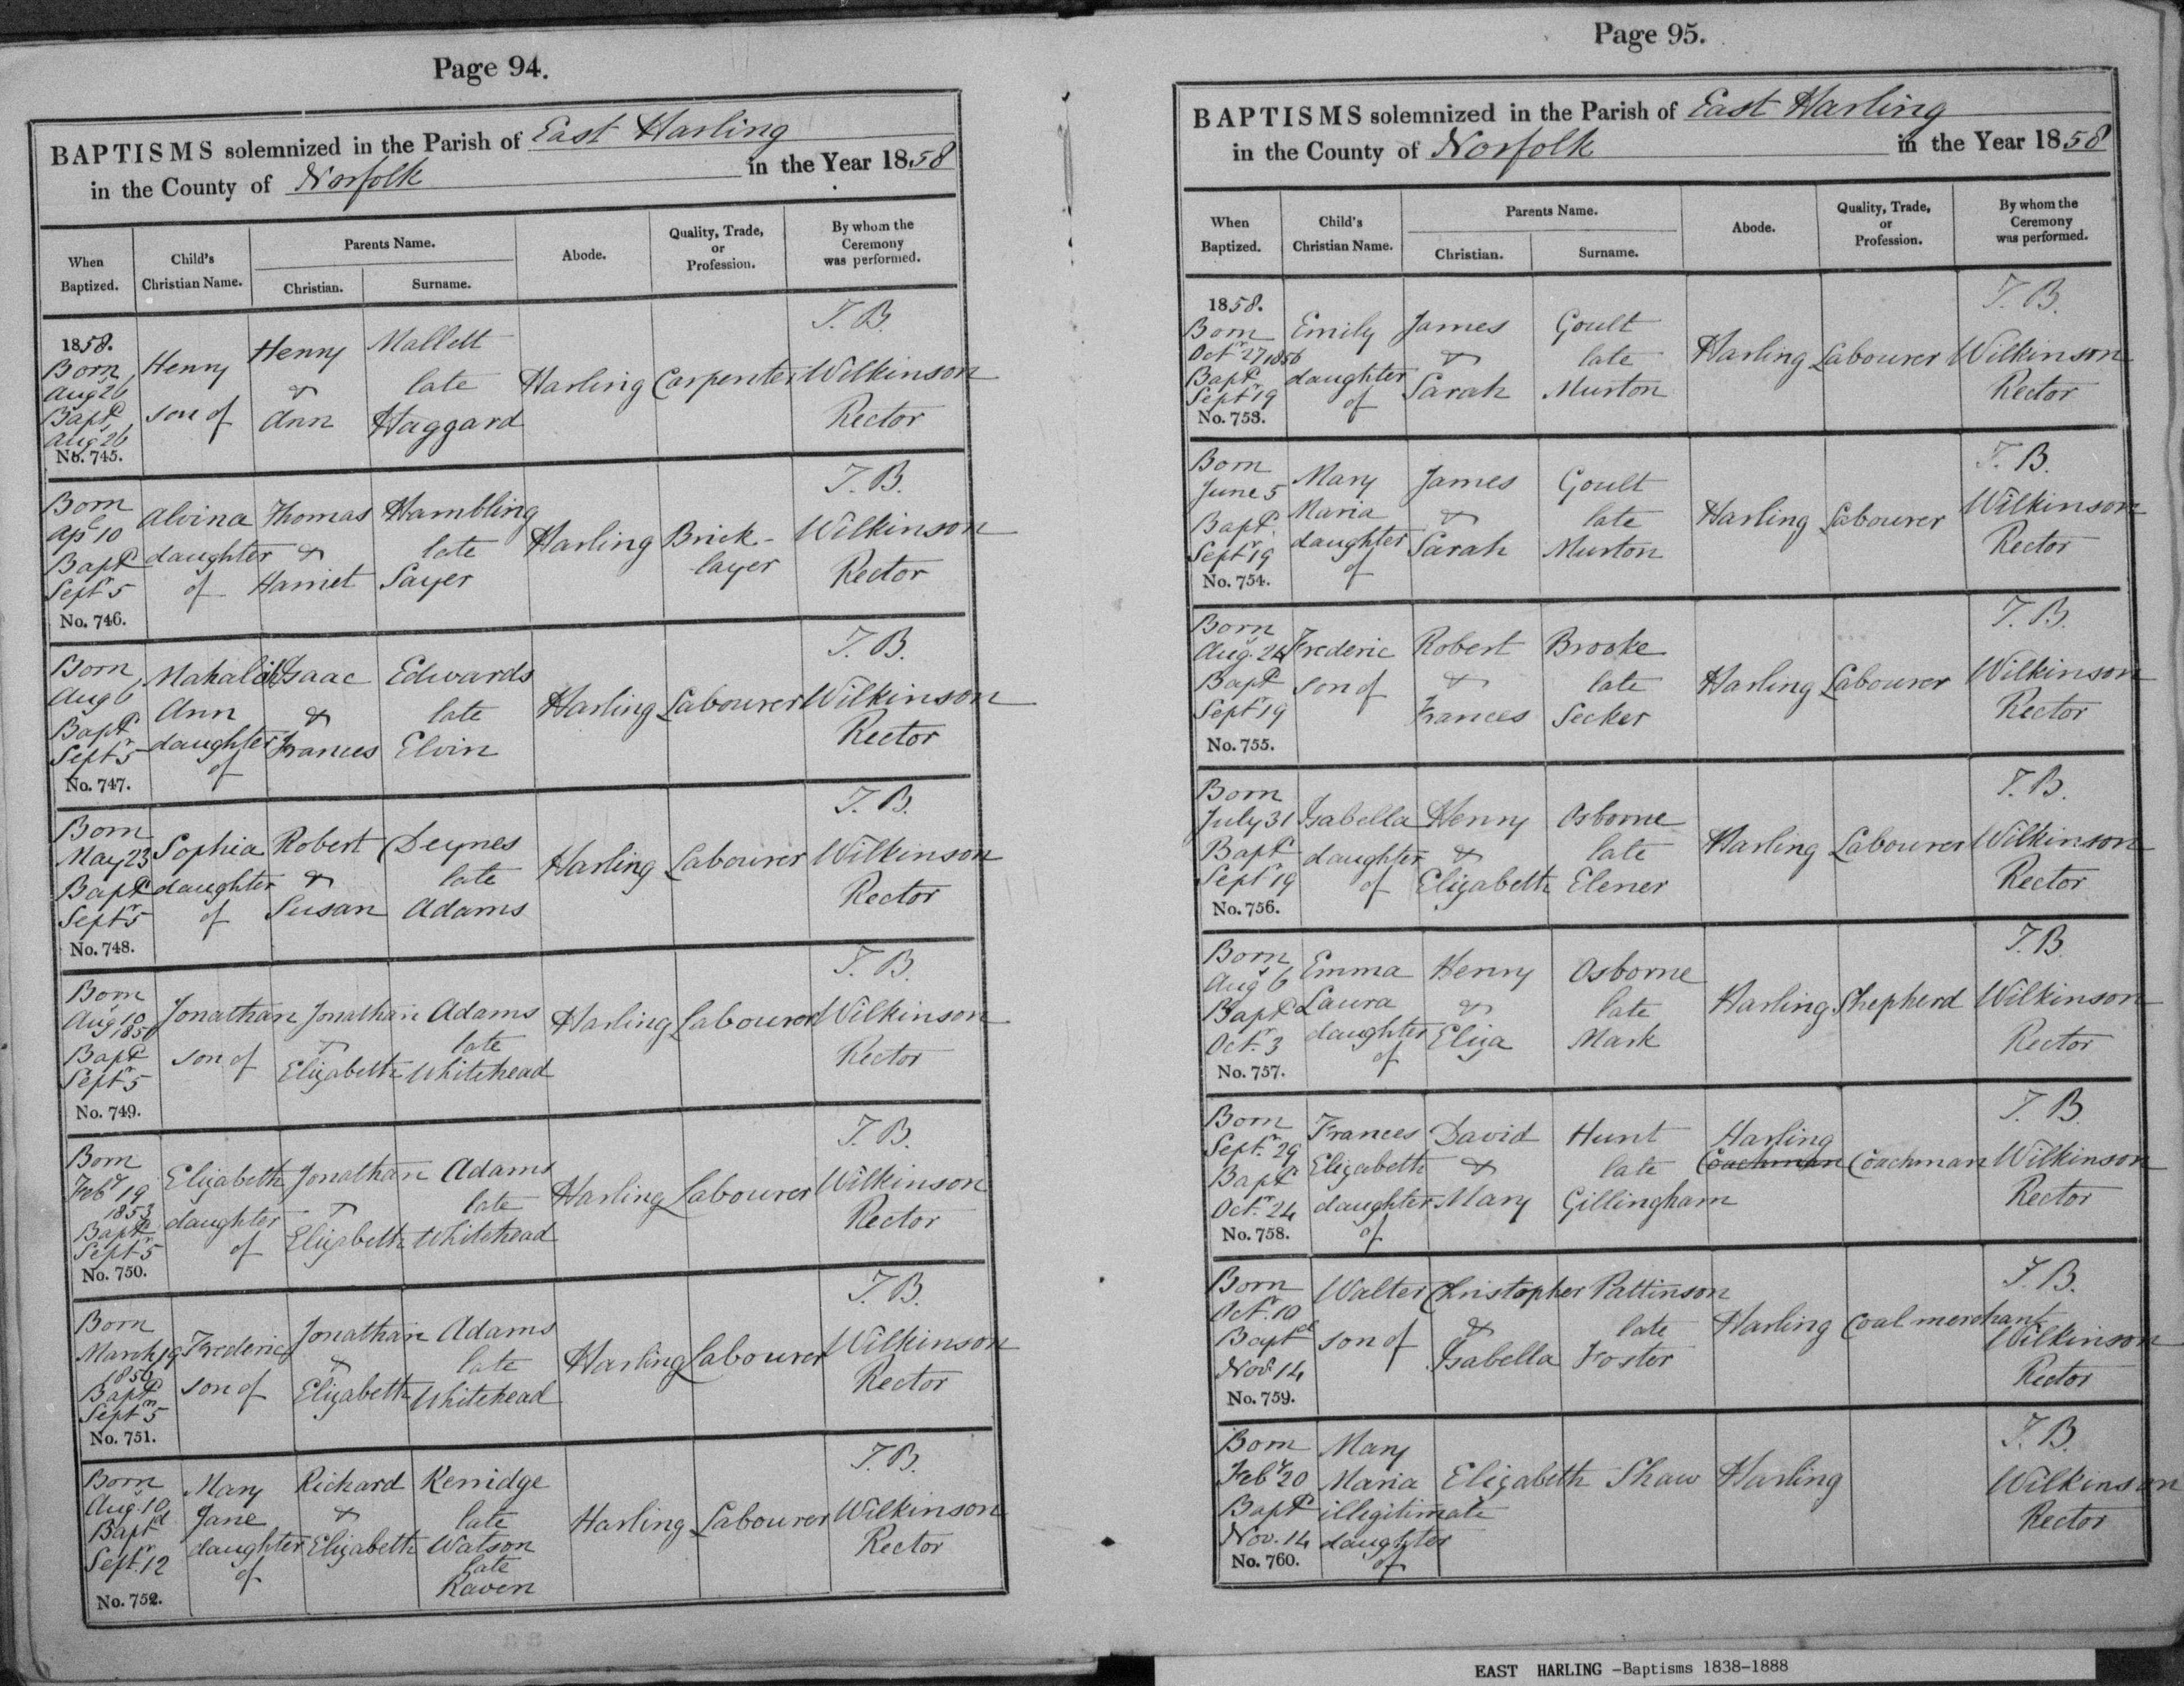 Page 94.
BAPTISMS solemnized in the Parish of East Harling
in the County of Norfolk in the Year 1858
When Baptized. Child's Christian Name. Parents Name. Christian. Surname. Abode. Quality, Trade, or Profession. By whom the Ceremony was performed.
1858. Born Augt 26 Baptd Augt 26 No. 745. Henry son of Henry & Ann Mallett late Haggard Harling Carpenter T. B. Wilkinson Rector
Born Apl 10 Baptd Septr 5 No. 746. Alvina daughter of Thomas & Harriet Hambling late Sayer Harling Brick-layer T. B. Wilkinson Rector
Born Augt 6 Baptd Septr 5 No. 747. Mahalah Ann daughter of Isaac & Frances Edwards late Elvin Harling Labourer T. B. Wilkinson Rector
Born May 23 Baptd Septr 5 No. 748. Sophia daughter of Robert & Susan Deynes late Adams Harling Labourer T. B. Wilkinson Rector
Born Augt 10 Baptd Septr 5 No. 749. Jonathan son of Jonathan & Elizabeth Adams late Whitehead Harling Labourer T. B. Wilkinson Rector
Born Feby 19 1853 Baptd Septr 5 No. 750. Elizabeth daughter of Jonathan & Elizabeth Adams late Whitehead Harling Labourer T. B. Wilkinson Rector
Born March 19 1856 Baptd Septr 5 No. 751. Frederic son of Jonathan & Elizabeth Adams late Whitehead Harling Labourer T. B. Wilkinson Rector
Born Aug. 10 Baptd Septr 12 No. 752. Mary Jane daughter of Richard & Elizabeth Kerridge late Watson late Raven Harling Labourer T. B. Wilkinson Rector
Page 95.
BAPTISMS solemnized in the Parish of East Harling
in the County of Norfolk in the Year 1858
When Baptized. Child's Christian Name. Parents Name. Christian. Surname. Abode. Quality, Trade, or Profession. By whom the Ceremony was performed.
1858. Born Octr 27 1856 Baptd Septr 19 No. 753. Emily daughter of James & Sarah Goult late Murton Harling Labourer T. B. Wilkinson Rector
Born June 5 Baptd Septr 19 No. 754. Mary Maria daughter of James & Sarah Goult late Murton Harling Labourer T. B. Wilkinson Rector
Born Augt 24 Baptd Septr 19 No. 755. Frederic son of Robert & Frances Brooke late Secker Harling Labourer T. B. Wilkinson Rector
Born July 31 Baptd Septr 19 No. 756. Isabella daughter of Henry & Elizabeth Osborne late Elener Harling Labourer T. B. Wilkinson Rector
Born Augt 6 Baptd Octr 3 No. 757. Emma Laura daughter of Henry & Eliza Osborne late Mark Harling Shepherd T. B. Wilkinson Rector
Born Septr 29 Baptd Octr 24 No. 758. Frances Elizabeth daughter of David & Mary Hunt late Gillingham Harling Coachman Coachman T. B. Wilkinson Rector
Born Octr 10 Baptd Novr 14 No. 759. Walter son of Christopher & Isabella Pattinson late Foster Harling Coal merchant T. B. Wilkinson Rector
Born Feby 20 Baptd Nov. 14 No. 760. Mary Maria illegitimate daughter of Elizabeth Shaw Harling T. B. Wilkinson Rector
EAST HARLING -Baptisms 1838-1888